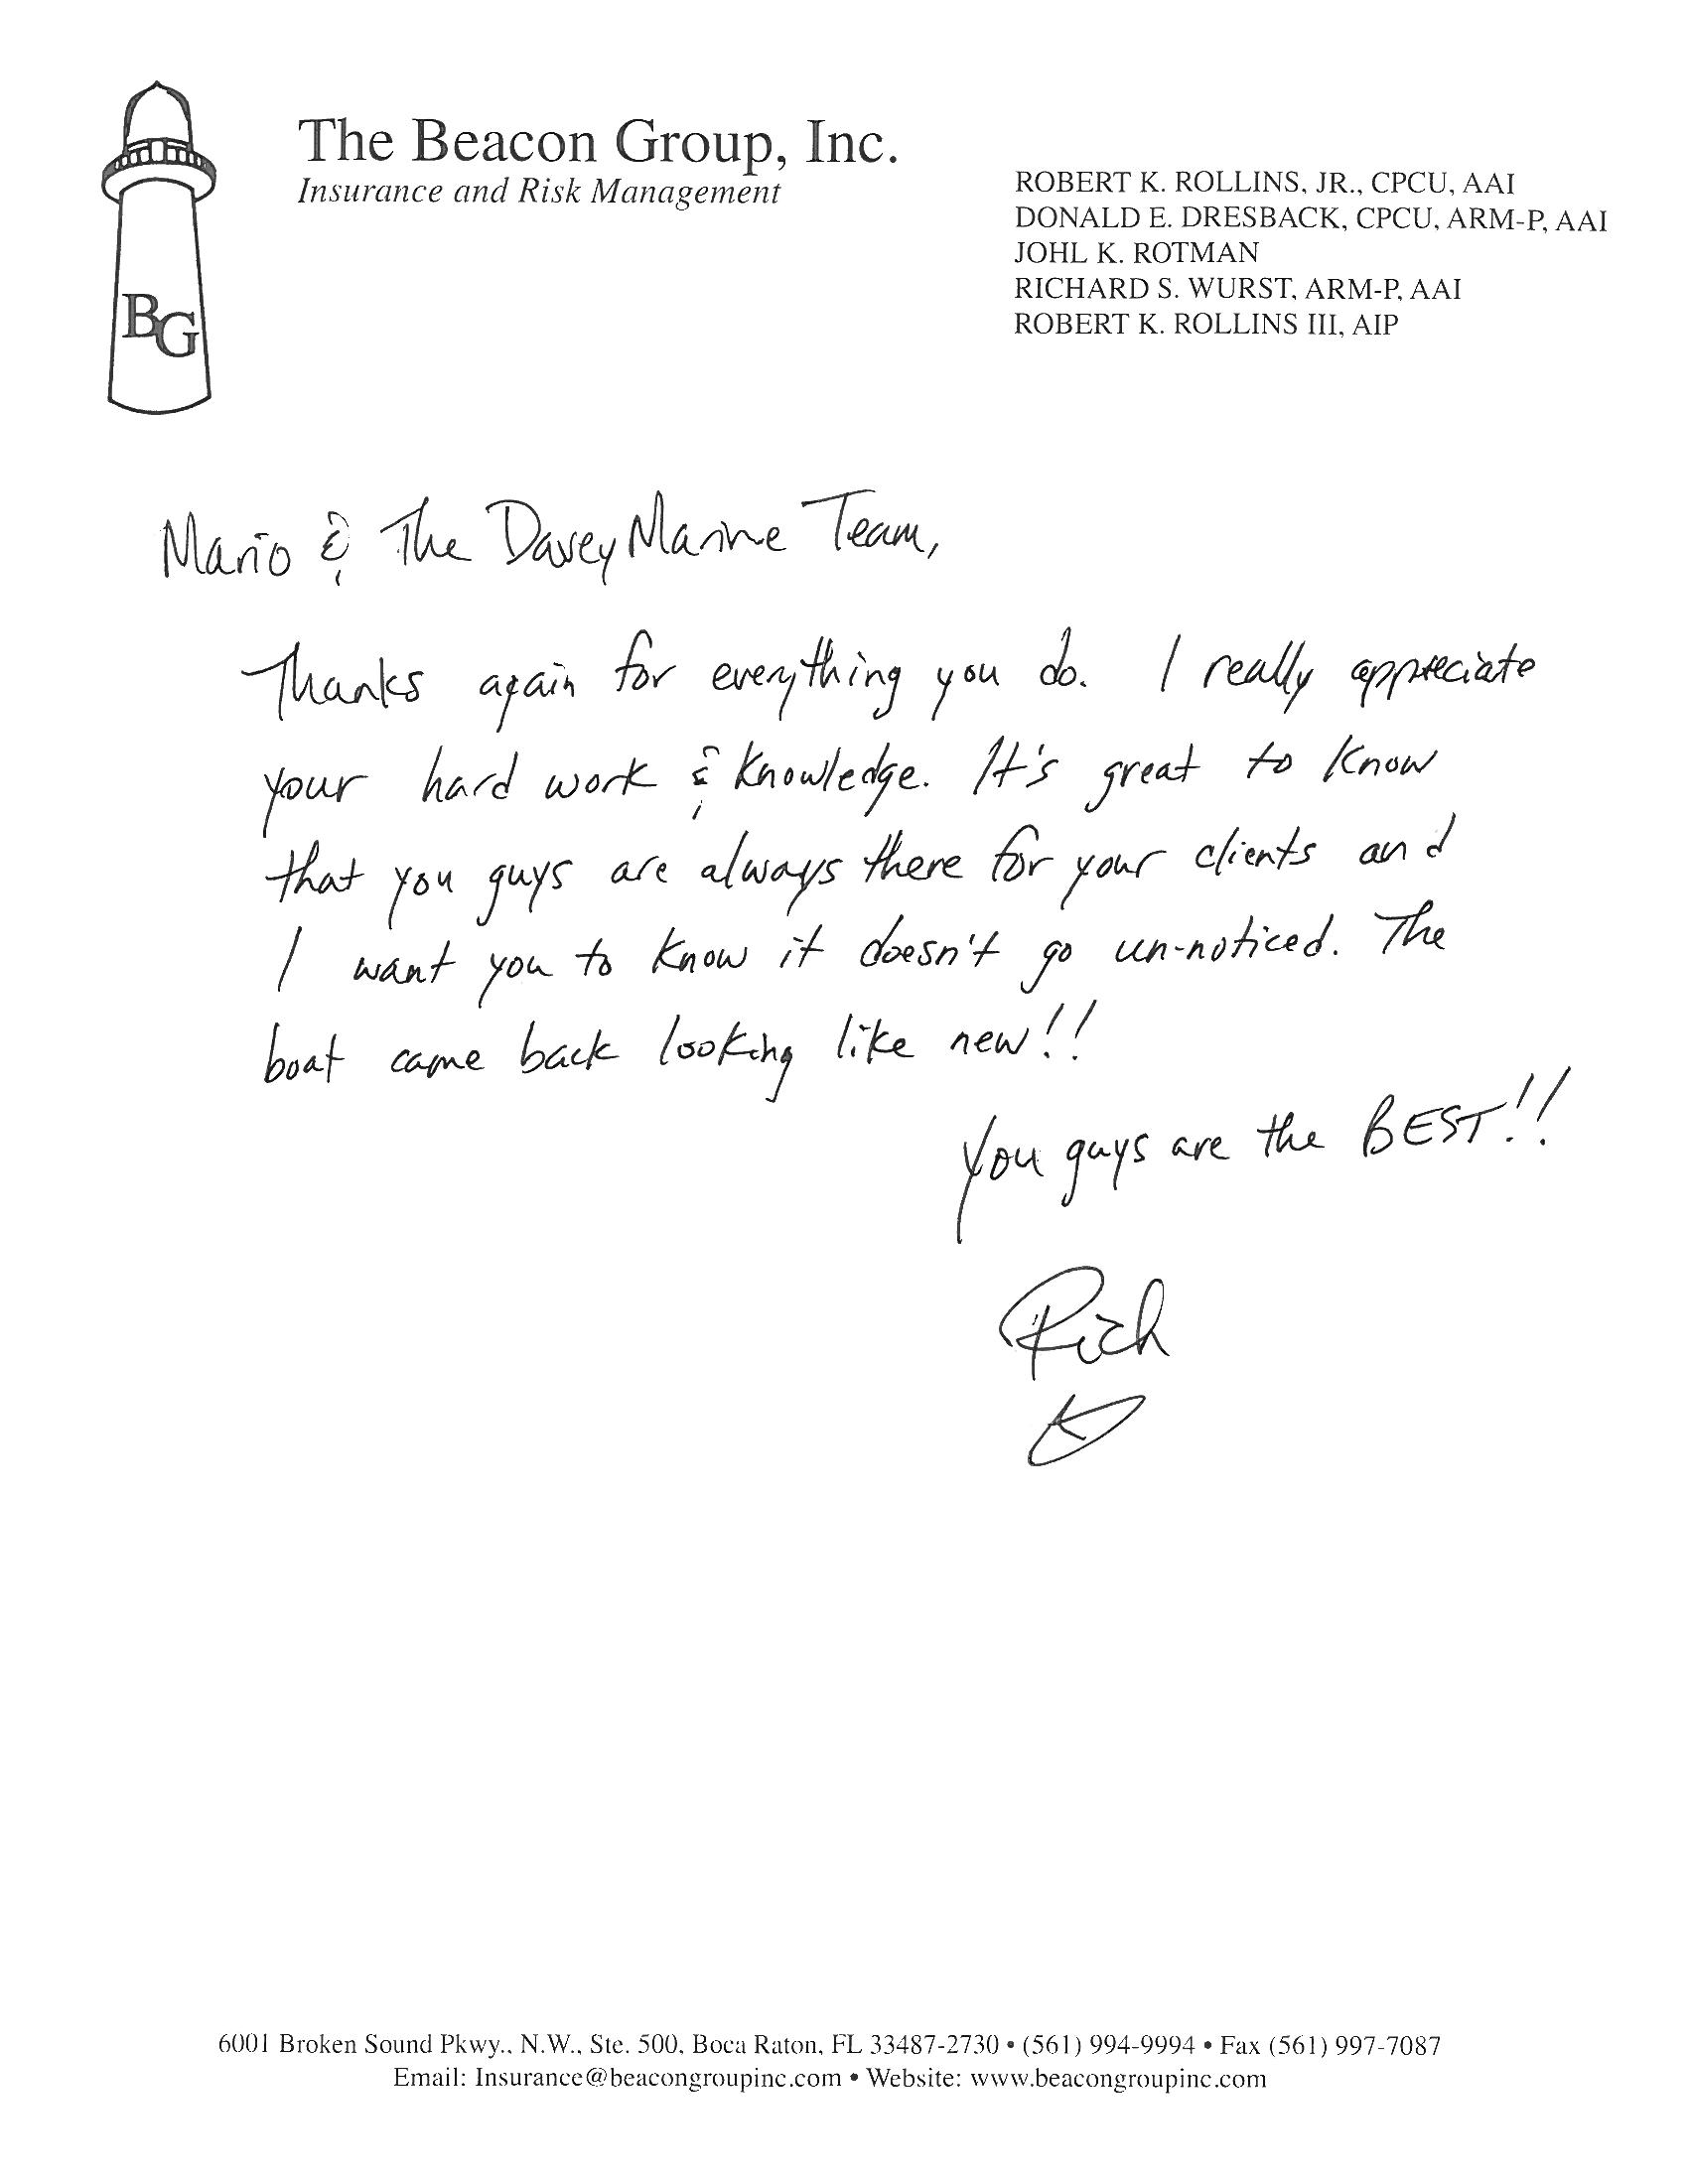 The Beacon Group, Inc.
Insurance and Risk Management
ROBERT K. ROLLINS, JR., CPCU, AAI
DONALD E. DRESBACK, CPCU, ARM-P, AAI
JOHL K. ROTMAN
RICHARD S. WURST, ARM-P, AAI
ROBERT K. ROLLINS III, AIP
BG
Mario & The Davey Marine Team,
Thanks again for everything you do. I really appreciate
your hard work & knowledge. It's great to know
that you guys are always there for your clients and
I want you to know it doesn't go un-noticed. The
boat came back looking like new!!
You guys are the BEST!!
Rich
6001 Broken Sound Pkwy., N.W., Ste. 500, Boca Raton, FL 33487-2730 • (561) 994-9994 • Fax (561) 997-7087
Email: Insurance@beacongroupinc.com • Website: www.beacongroupinc.com